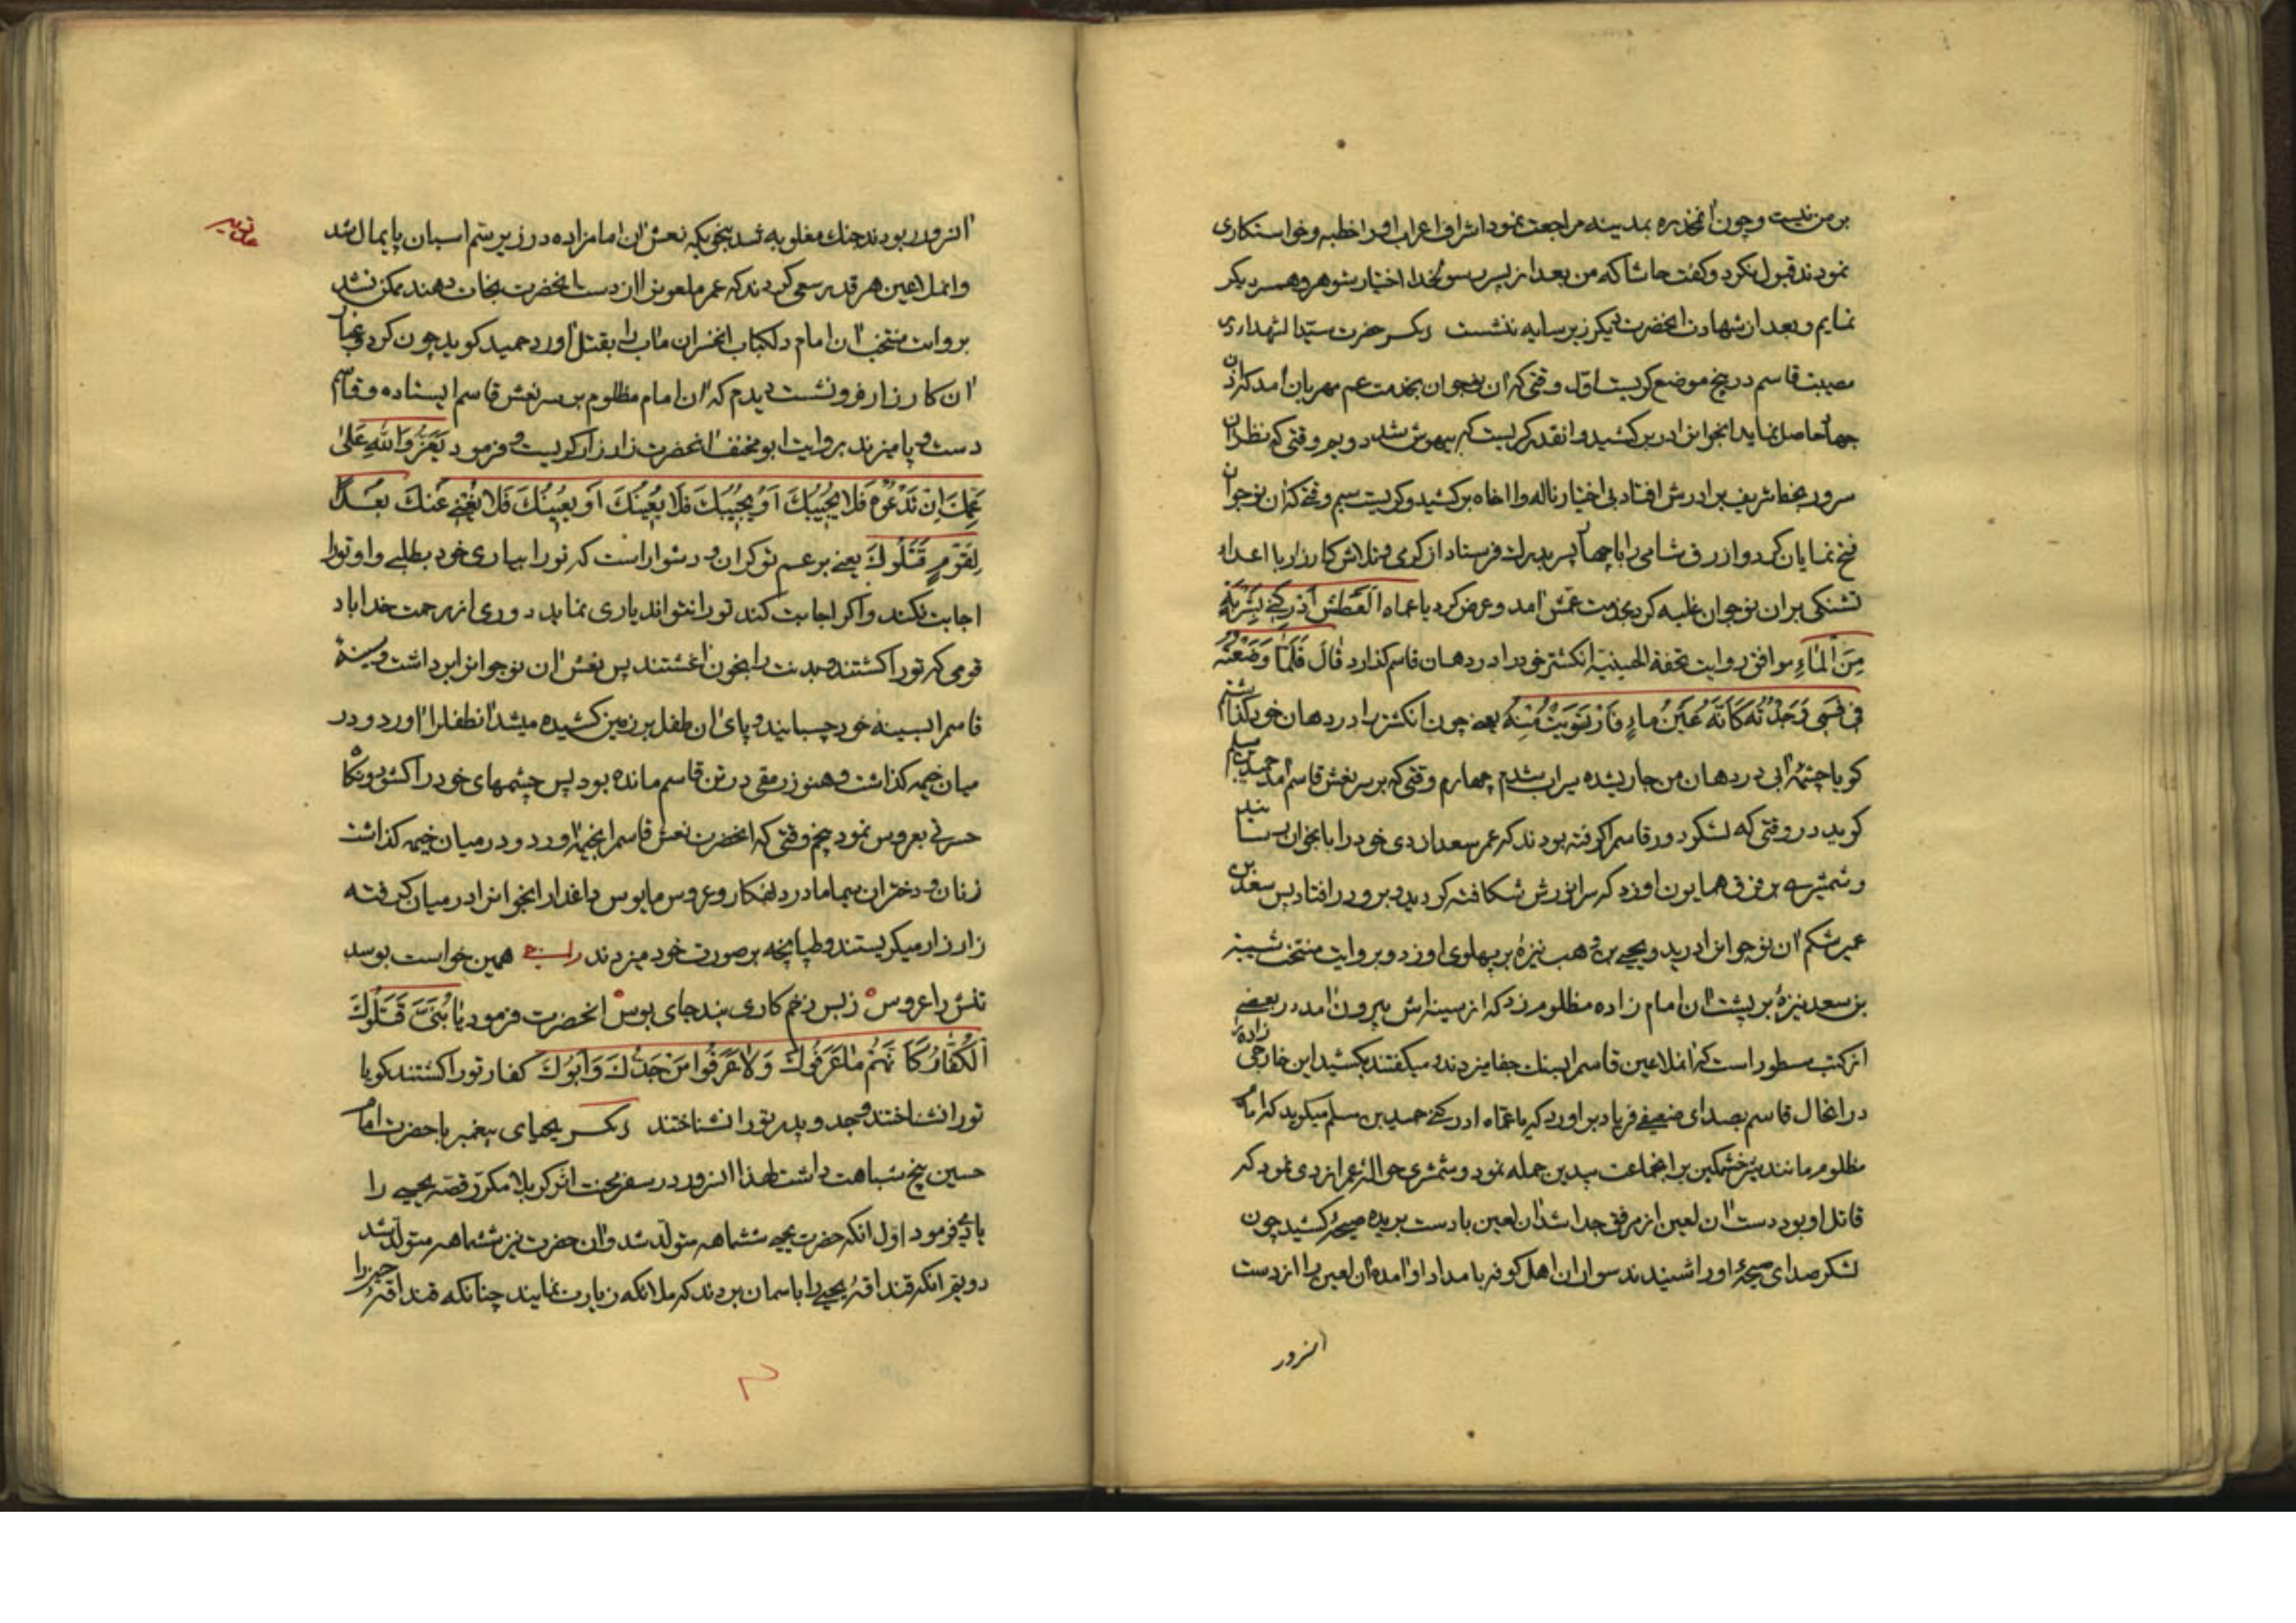 بر من نیست و چون آنمخدره بمدینه مراجعت نمود اشراف اعراب او را خطبه و خواستکاری
نمودند قبول نکرد و کفت حاشا که من بعد از پسر رسولخدا اختیار شوهر و همسر دیکر
نمایم و بعد از شهادت آنحضرت دیکر زیر سایه ننشست دیکر حضرت سیّد الشهداء در
مصیبت قاسم در پنج موضع کریست اوّل وقتی که آن نوجوان بخدمت عم مهربان آمد که اذن
جهاد حاصل نماید آنجوانرا در بر کشید و آنقدر کریست که بیهوش شد دویم وقتی که نظر آن
سرور بخط شریف برادرش افتاد بی اختیار ناله وا اخاه برکشید و کریست سیم وقتی که آن نوجوان
فتح نمایان کرد و ازرق شامی را با چهار پسر بدرک فرستاد از کرمی و تلاش کارزار با اعداء
تشنکی بر آن نوجوان غلبه کرد بخدمت عمّش آمد و عرض کرد یا عماه اَلعَطَش اَدْرِکْنی بِشَرْبَةٍ
مِنَ الْماءِ موافق روایت تحفة الحسینیّه انکشتر خود را در دهان قاسم کذارد قالَ فَلَمّا وَضَعْتُهُ
فی فَمی وَجَدْتُهُ کَاَنَّهُ عَیْنُ ماءٍ فَارْتَوَیْتُ مِنْهُ یعنی چون انکشتر را در دهان خود کذاشتم
کویا چشمهٔ آبی در دهان من جاری شده سیراب شدم چهارم وقتی که بر سر نعش قاسم آمد حمید بن مسلم
کوید در وقتی که لشکر دور قاسم را کرفته بودند که عمر سعد ازدی خود را بآنجوان رسانید
و شمشیری بر فرق همایون او زد که سر انورش شکافته کردید و برو در افتاد پس سعد بن
عمیر شکم آن نوجوانرا درید و یحیی بن وهب نیزهٔ بر پهلوی او زد و بروایت منتخب شیبة
بن سعد نیزهٔ بر پشت آن امام زاده مظلوم زد که از سینه‌اش بیرون آمد در بعضی
از کتب مسطور است که آنملاعین قاسم را بسنک جفا میزدند و میکفتند بکشید این خارجی زاده را
در آنحال قاسم بصدای ضعیفی فریاد برآورد که یا عمّاه ادرکنی حمید بن مسلم میکوید که آن امام
مظلوم مانند شیر خشمکین بر آنجماعت بیدین حمله نمود و شمشیری حوالهٔ عمر ازدی نمود که
قاتل او بود دست آن لعین از مرفق جدا شد آن لعین با دست بریده صیحهٔ کشید چون
لشکر صدای صیحهٔ او را شنیدند سواران اهل کوفه بامداد او آمده آن لعین را از دست
آنسرور
آنسرور ربودند جنک مغلوبه شد بنحویکه نعش آن امامزاده در زیر سم اسبان پایمال شد
و آنملاعین هر قدر سعی کردند که عمر ملعون را از دست آنحضرت نجات دهند ممکن نشد
بروایت منتخب آن امام دلکباب آنخسران مآب را بقتل آورد حمید کوید چون کرد و غبار
آن کارزار فرو نشست دیدم که آن امام مظلوم بر سر نعش قاسم ایستاده و قاسم
دست و پا میزند بروایت ابو مخنف آنحضرت زار زار کریست و فرمود یَعَزُّ وَاللّهِ عَلی
عَمِّکَ اِنْ تَدْعُوْهُ فَلا یُجیبُکَ اَوْ یُجیبُکَ فَلا یُعینُکَ اَوْ یُعینُکَ فَلا یُغْنی عَنْکَ بُعْداً
لِقَوْمٍ قَتَلُوکَ یعنی بر عم تو کران و دشوار است که تو را بیاری خود بطلبی و او تو را
اجابت نکند و اکر اجابت کند تو را نتواند یاری نماید دوری از رحمت خدا باد
قومی که تو را کشتند و بدنت را بخون آغشتند پس نعش آن نوجوانرا برداشت و سینه
قاسم را بسینهٔ خود چسبانید و پای آن طفل بر زمین کشیده میشد آنطفلرا آورد و در
میان خیمه کذاشت و هنوز رمقی در تن قاسم مانده بود پس چشمهای خود را کشود و نکاه
حسرتی بعروس نمود پنجم وقتی که آنحضرت نعش قاسم را بخیمه آورد و در میان خیمه کذاشت
زنان و دختران بیما مادر دلفکار و عروس مایوس داغدار آنجوانرا در میان کرفته
زار زار میکریستند و طپانچه بر صورت خود میزدند همین خواست بوسد
تنش را عروس ه زبس زخم کاری بند جای بوس ه آنحضرت فرمود یا بُنَیَّ قَتَلُوکَ
اَلْکُفّارُ کَاَنَّهُمْ ما عَرَفُوکَ وَلا عَرَفُوا مَنْ جَدُّکَ وَاَبُوکَ کفار تو را کشتند کویا
تو را نشناختند و جد و پدر تو را نشناختند دیکر یحیای پیغمبر با حضرت امام
حسین پنج شباهت داشت لهذا آنسرور در سفر محنت اثر کربلا مکرّر قصّه یحیی را
یاد میفرمود اوّل آنکه حضرت یحیی ششماهه متولّد شد و آن حضرت نیز ششماهه متولّد شد
دویم آنکه قنداقهٔ یحیی را باسمان بردند که ملائکه زیارت نمایند چنانکه قنداقهٔ حسین را